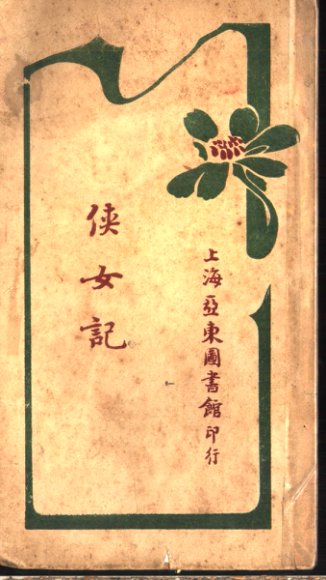 上海亞東圖書館印行
俠女記